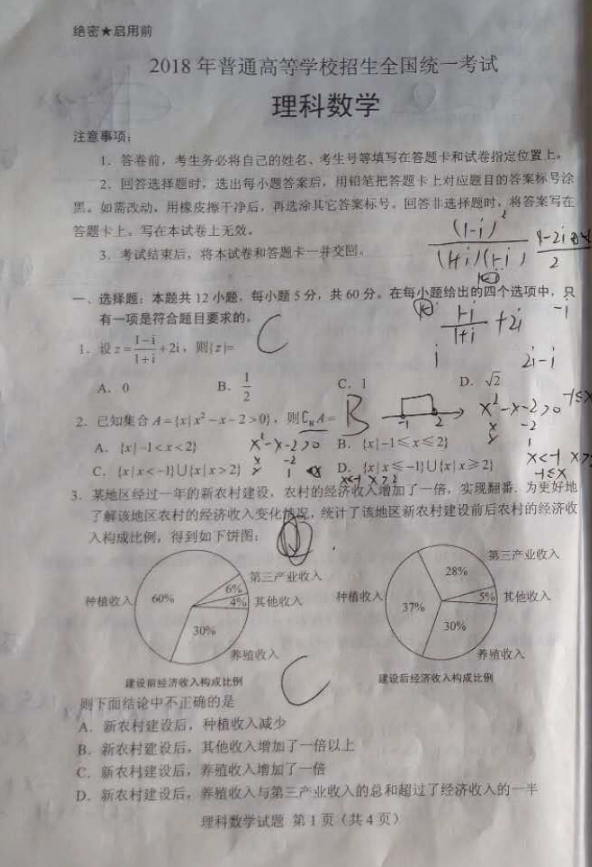 绝密★启用前
2018 年普通高等学校招生全国统一考试
理科数学
注意事项：
1．答卷前，考生务必将自己的姓名、考生号等填写在答题卡和试卷指定位置上。
2．回答选择题时，选出每小题答案后，用铅笔把答题卡上对应题目的答案标号涂
黑。如需改动，用橡皮擦干净后，再选涂其它答案标号。回答非选择题时，将答案写在
答题卡上。写在本试卷上无效。
3．考试结束后，将本试卷和答题卡一并交回。
(1-i)²
(1+i)(1-i)
2
一、选择题：本题共 12 小题，每小题 5 分，共 60 分。在每小题给出的四个选项中，只
有一项是符合题目要求的。
1-i
1+i
+2i
-i
1．设 z=(1-i)/(1+i)+2i，则|z|= C
i 2i-i
A．0 B．1/2 C．1 D．√2
2．已知集合 A={x|x²-x-2>0}，则∁RA= B
-1 2
x²-x-2>0
A．{x|-1<x<2} B．{x|-1≤x≤2}
x²-x-2>0
C．{x|x<-1}∪{x|x>2} D．{x|x≤-1}∪{x|x≥2}
x -2
1
3．某地区经过一年的新农村建设，农村的经济收入增加了一倍，实现翻番．为更好地
了解该地区农村的经济收入变化情况，统计了该地区新农村建设前后农村的经济收
入构成比例，得到如下饼图：
种植收入 60% 第三产业收入 6% 其他收入 4% 30% 养殖收入
建设前经济收入构成比例
种植收入 37% 第三产业收入 28% 其他收入 5% 30% 养殖收入
建设后经济收入构成比例
则下面结论中不正确的是
C
A．新农村建设后，种植收入减少
B．新农村建设后，其他收入增加了一倍以上
C．新农村建设后，养殖收入增加了一倍
D．新农村建设后，养殖收入与第三产业收入的总和超过了经济收入的一半
理科数学试题 第 1 页（共 4 页）